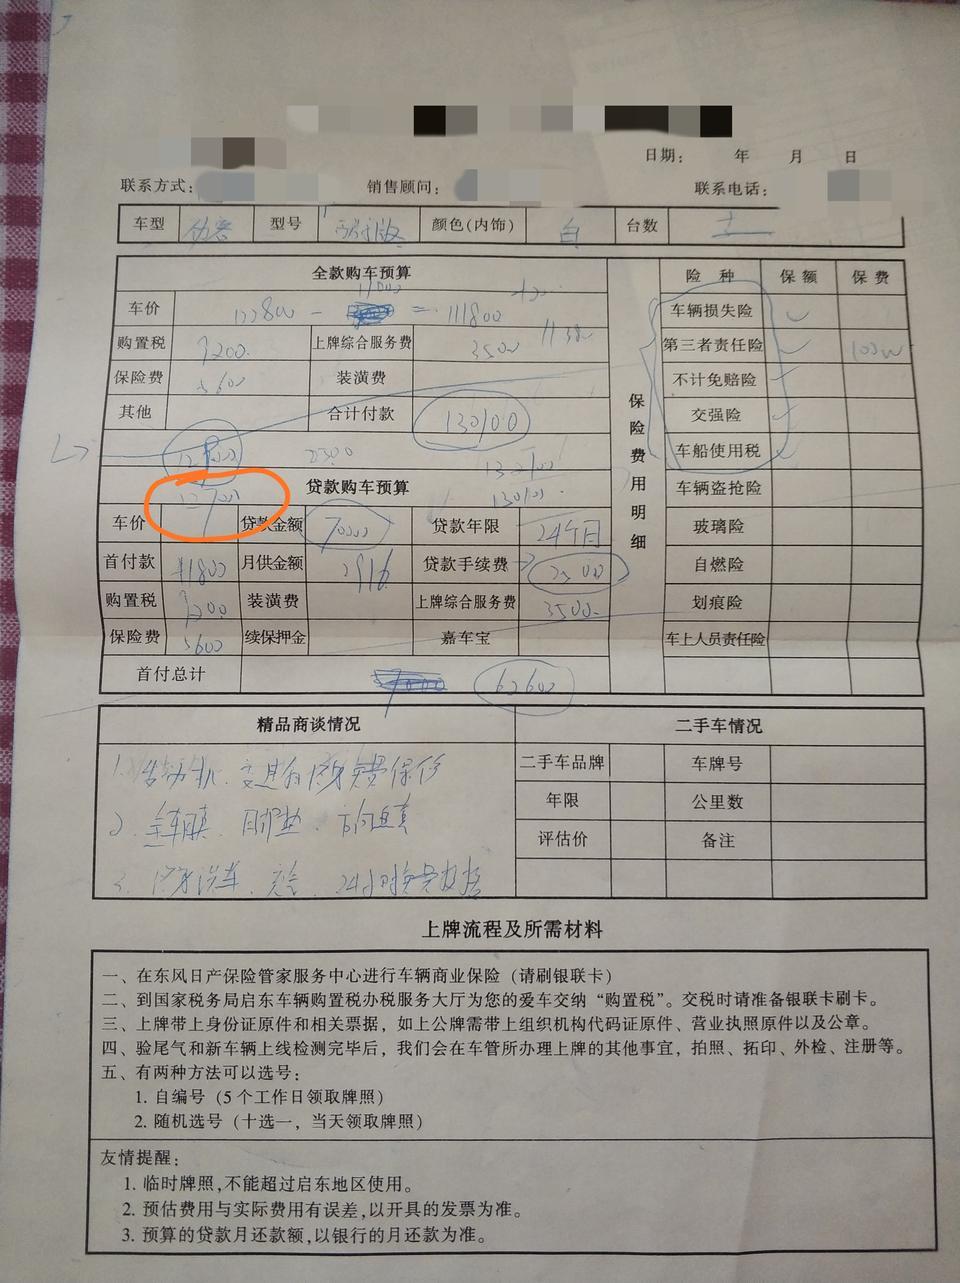 日期： 年 月 日
联系方式： 销售顾问： 联系电话：
车型 型号 颜色(内饰) 白 台数
全款购车预算 险 种 保 额 保 费
车价 122800 - 11000 = 111800 车辆损失险
购置税 9200 上牌综合服务费 3500 第三者责任险 100w
保险费 5600 装潢费 不计免赔险
其他 合计付款 130100 交强险
2300 132100 车船使用税
127000 贷款购车预算 130100 保险费用明细 车辆盗抢险
车价 贷款金额 70000 贷款年限 24个月 玻璃险
首付款 41800 月供金额 2916 贷款手续费 自燃险
购置税 9200 装潢费 上牌综合服务费 3500 划痕险
保险费 5600 续保押金 嘉车宝 车上人员责任险
首付总计 62600
精品商谈情况 二手车情况
1. 发动机、变速箱终身免费保修 二手车品牌 车牌号
2. 全车膜、脚垫、方向盘套 年限 公里数
评估价 备注
3. 终身洗车、24小时免费救援
上牌流程及所需材料
一、在东风日产保险管家服务中心进行车辆商业保险（请刷银联卡）
二、到国家税务局启东车辆购置税办税服务大厅为您的爱车交纳“购置税”。交税时请准备银联卡刷卡。
三、上牌带上身份证原件和相关票据，如上公牌需带上组织机构代码证原件、营业执照原件以及公章。
四、验尾气和新车辆上线检测完毕后，我们会在车管所办理上牌的其他事宜，拍照、拓印、外检、注册等。
五、有两种方法可以选号：
1. 自编号（5 个工作日领取牌照）
2. 随机选号（十选一，当天领取牌照）
友情提醒：
1. 临时牌照,不能超过启东地区使用。
2. 预估费用与实际费用有误差,以开具的发票为准。
3. 预算的贷款月还款额,以银行的月还款为准。